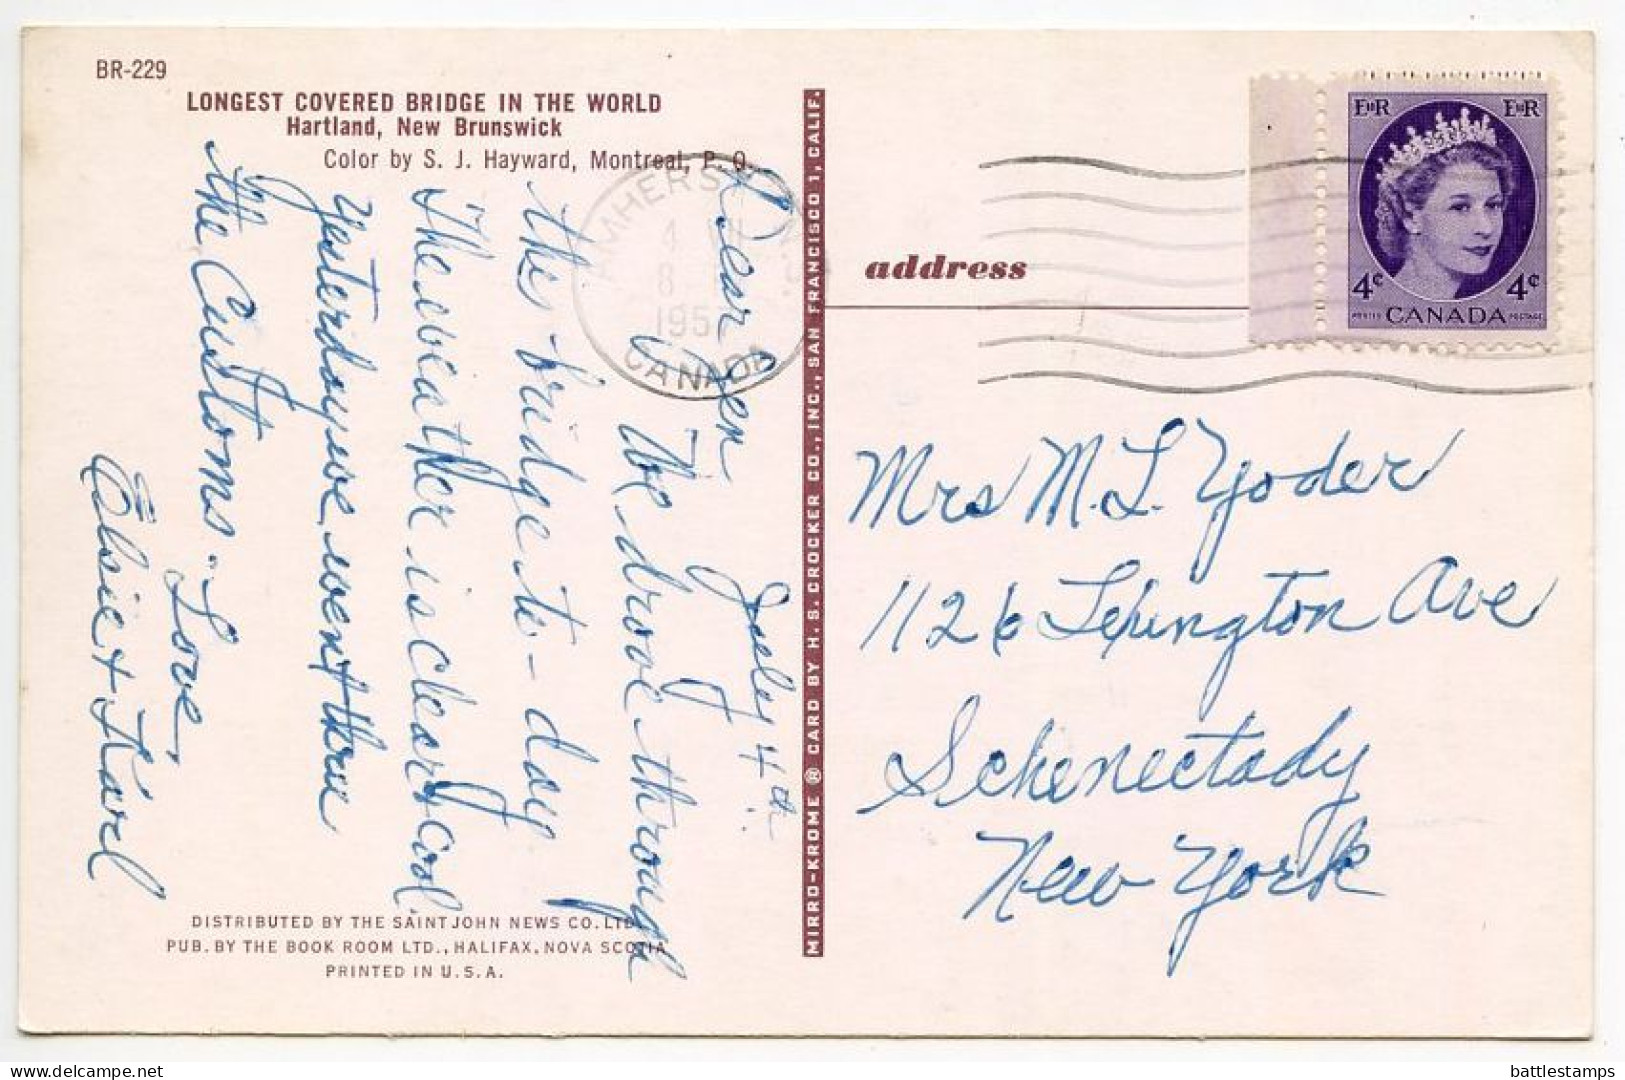 BR-229
LONGEST COVERED BRIDGE IN THE WORLD
Hartland, New Brunswick
Color by S. J. Hayward, Montreal, P. Q.
July 4th
Dear Jen
We drove through
the bridge to-day
The weather is clear & cool.
Yesterday we went thru
the Customs.
Love,
Elsie & Karl
DISTRIBUTED BY THE SAINT JOHN NEWS CO. LTD.
PUB. BY THE BOOK ROOM LTD., HALIFAX, NOVA SCOTIA
PRINTED IN U.S.A.
MIRRO-KROME ® CARD BY H. S. CROCKER CO., INC., SAN FRANCISCO 1, CALIF.
AMHERST
CANADA
address
EIIR EIIR
4¢ 4¢
POSTES CANADA POSTAGE
Mrs M. L. Yoder
1126 Lexington Ave
Schenectady
New York
battlestamps